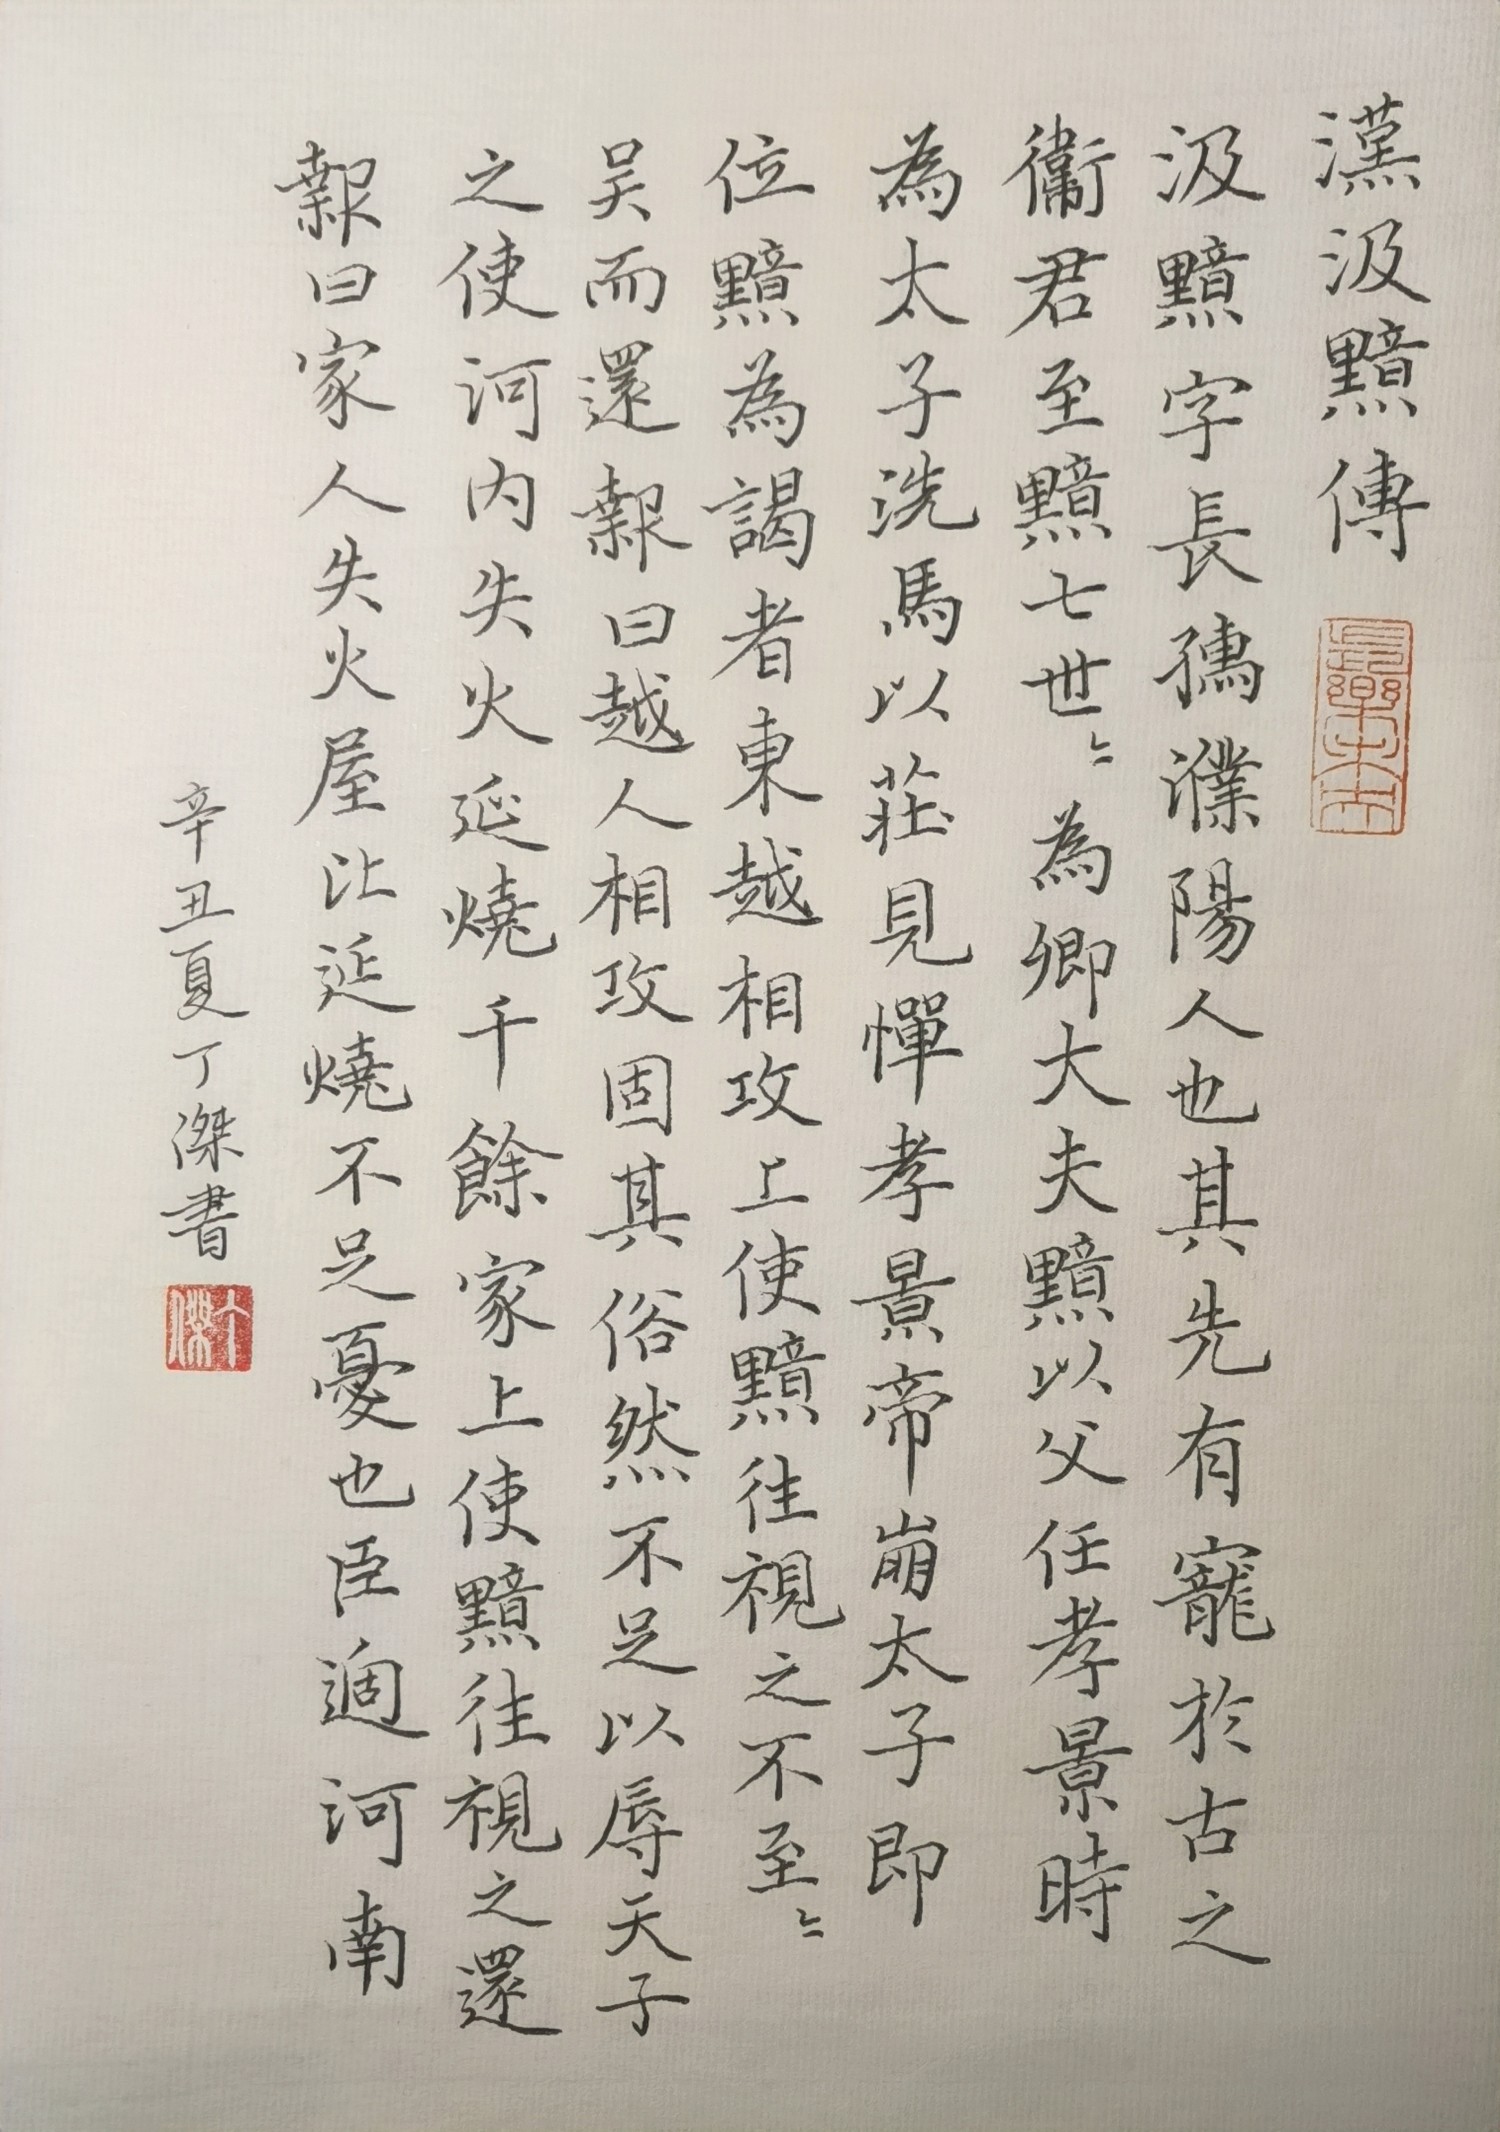 漢汲黯傳
長樂未央
汲黯字長孺濮陽人也其先有寵於古之
衞君至黯七世〻為卿大夫黯以父任孝景時
為太子洗馬以莊見憚孝景帝崩太子即
位黯為謁者東越相攻上使黯往視之不至〻
吴而還報曰越人相攻固其俗然不足以辱天子
之使河内失火延燒千餘家上使黯往視之還
報曰家人失火屋比延燒不足憂也臣過河南
辛丑夏丁傑書
丁傑